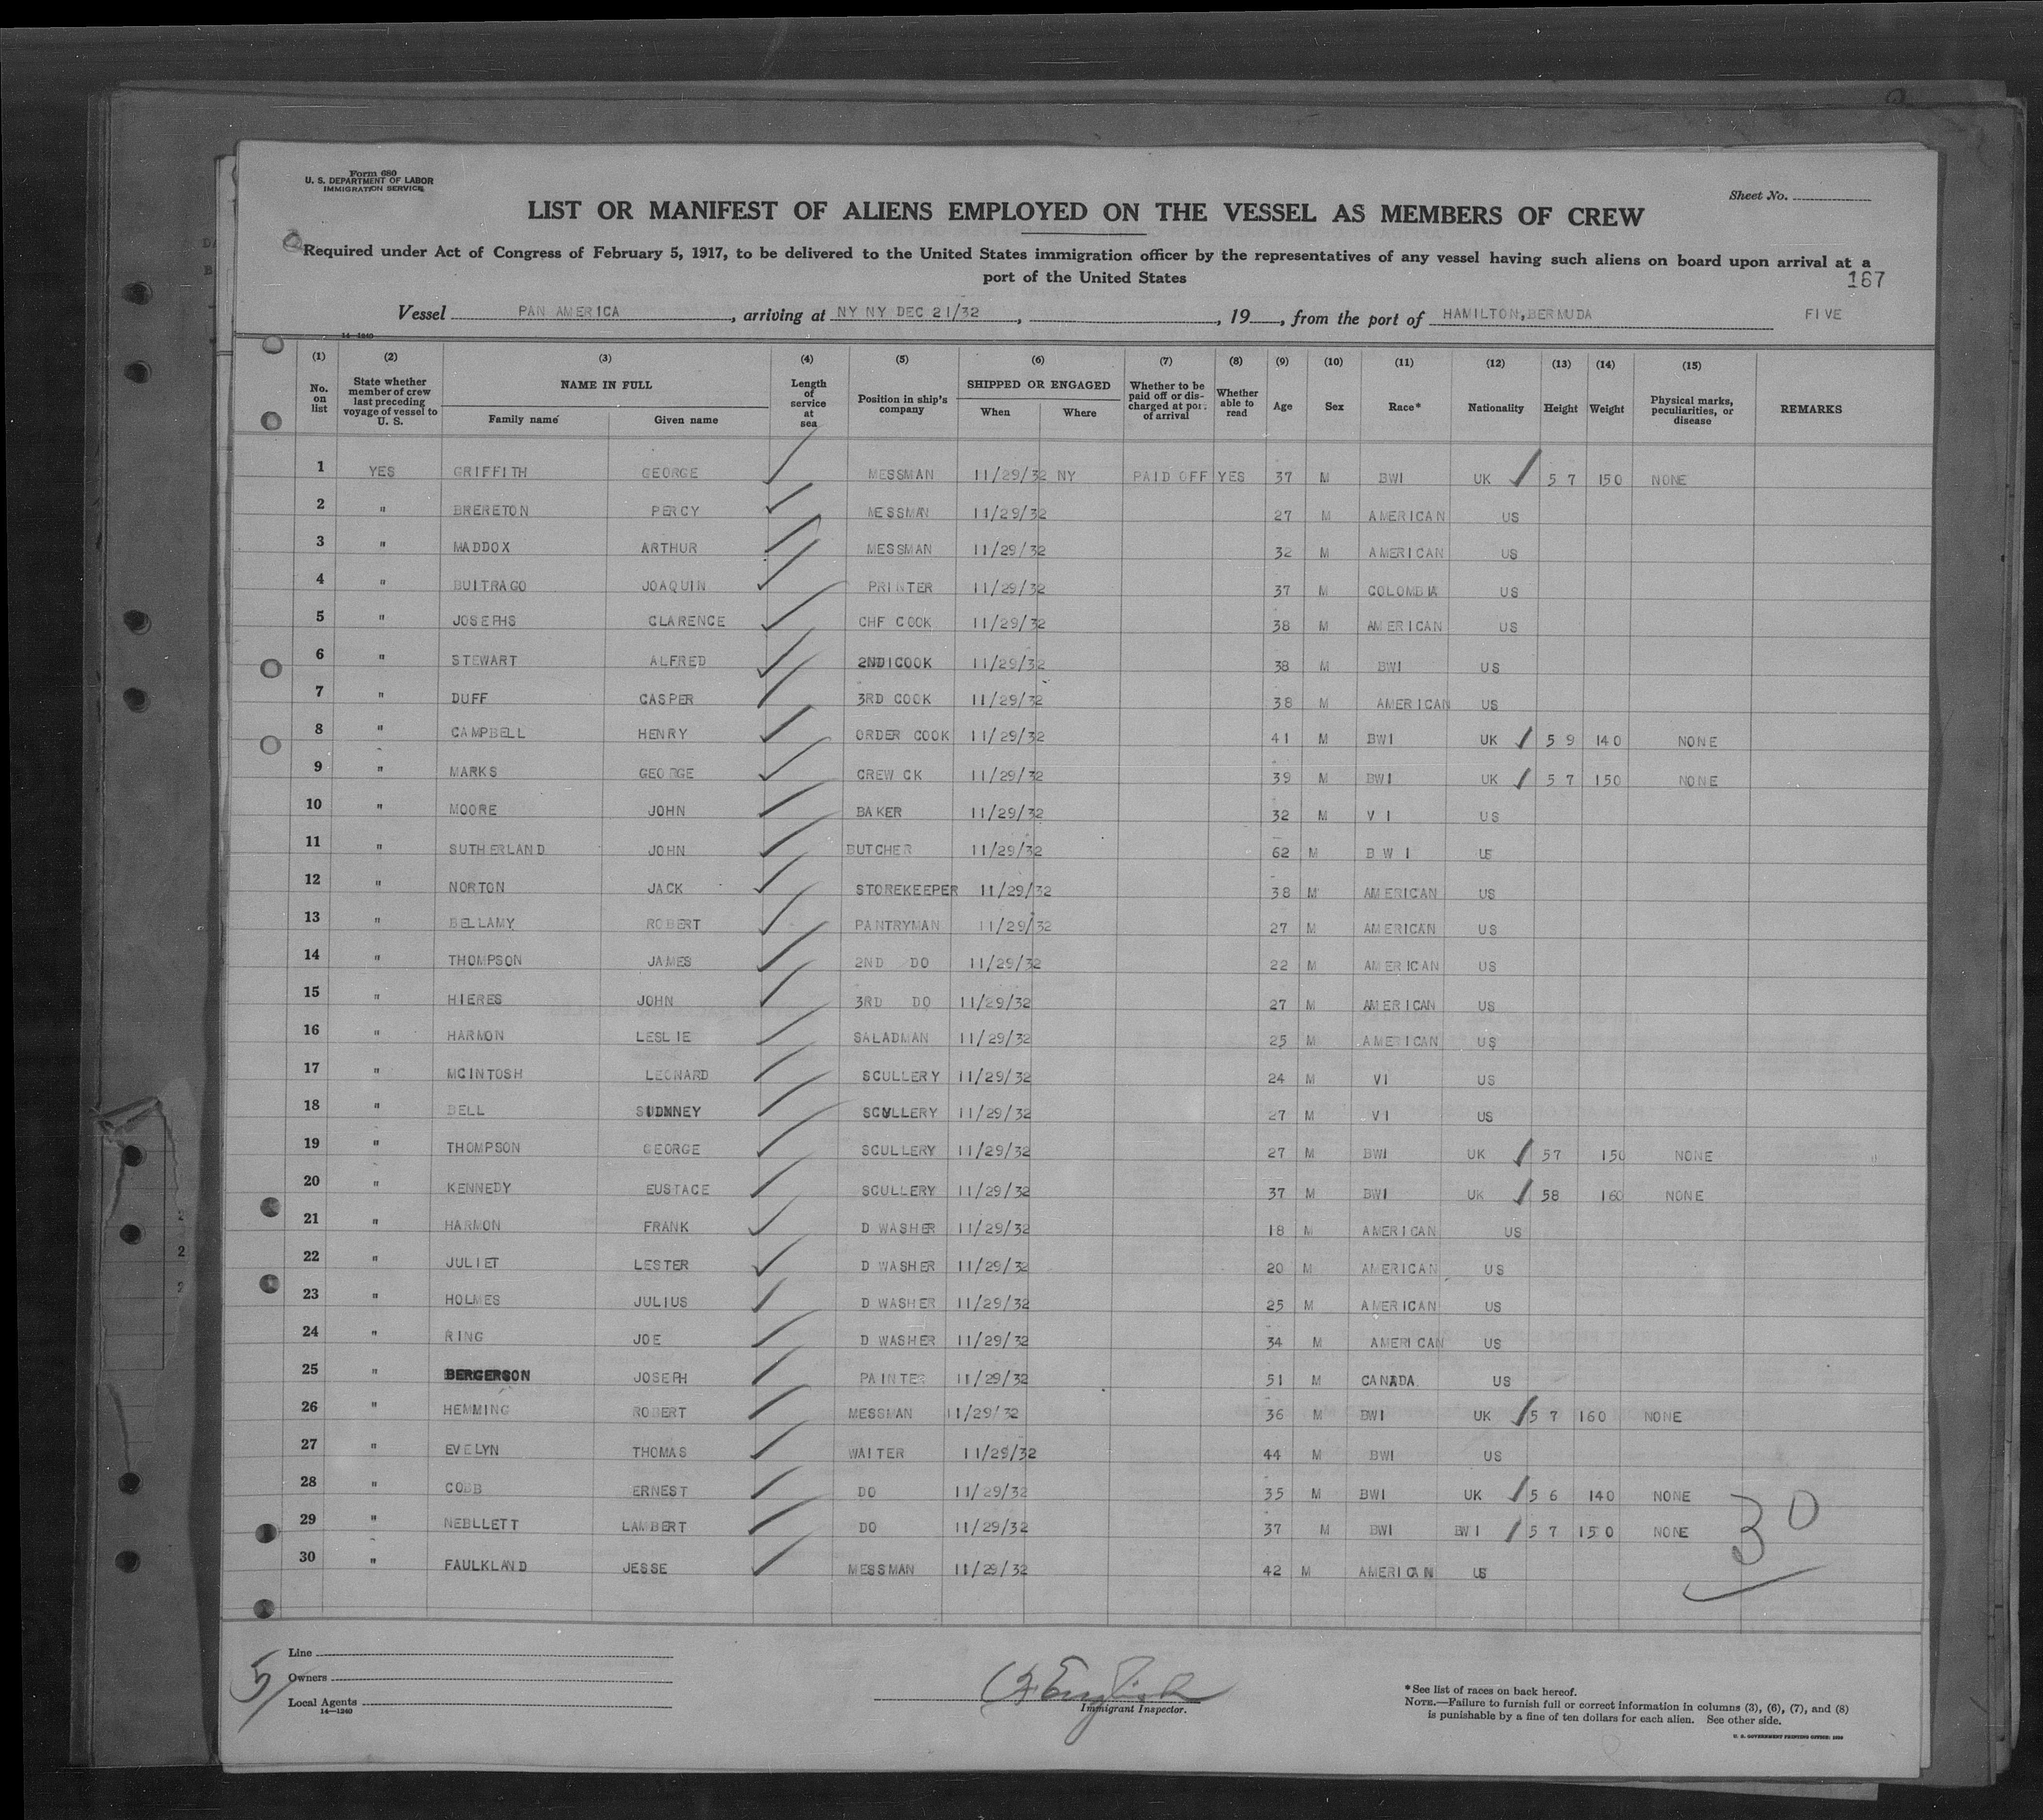 Form 680
U. S. DEPARTMENT OF LABOR
IMMIGRATION SERVICE
Sheet No.
LIST OR MANIFEST OF ALIENS EMPLOYED ON THE VESSEL AS MEMBERS OF CREW
Required under Act of Congress of February 5, 1917, to be delivered to the United States immigration officer by the representatives of any vessel having such aliens on board upon arrival at a
port of the United States
167
Vessel PAN AMERICA, arriving at NY NY DEC 21/32, , 19 , from the port of HAMILTON, BERMUDA FIVE
14—1240
(1) (2) (3) (4) (5) (6) (7) (8) (9) (10) (11) (12) (13) (14) (15)
No. on list State whether member of crew last preceding voyage of vessel to U. S. NAME IN FULL Family name Given name Length of service at sea Position in ship's company SHIPPED OR ENGAGED When Where Whether to be paid off or discharged at port of arrival Whether able to read Age Sex Race* Nationality Height Weight Physical marks, peculiarities, or disease REMARKS
1 YES GRIFFITH GEORGE MESSMAN 11/29/32 NY PAID OFF YES 37 M BWI UK 5 7 150 NONE
2 " BRERETON PERCY MESSMAN 11/29/32 27 M AMERICAN US
3 " MADDOX ARTHUR MESSMAN 11/29/32 32 M AMERICAN US
4 " BUITRAGO JOAQUIN PRINTER 11/29/32 37 M COLOMBIA US
5 " JOSEPHS CLARENCE CHF COOK 11/29/32 38 M AMERICAN US
6 " STEWART ALFRED 2ND COOK 11/29/32 38 M BWI US
7 " DUFF CASPER 3RD COOK 11/29/32 38 M AMERICAN US
8 " CAMPBELL HENRY ORDER COOK 11/29/32 41 M BWI UK 5 9 140 NONE
9 " MARKS GEORGE CREW CK 11/29/32 39 M BWI UK 5 7 150 NONE
10 " MOORE JOHN BAKER 11/29/32 32 M V I US
11 " SUTHERLAND JOHN BUTCHER 11/29/32 62 M B W I US
12 " NORTON JACK STOREKEEPER 11/29/32 38 M AMERICAN US
13 " BELLAMY ROBERT PANTRYMAN 11/29/32 27 M AMERICAN US
14 " THOMPSON JAMES 2ND DO 11/29/32 22 M AMERICAN US
15 " HIERES JOHN 3RD DO 11/29/32 27 M AMERICAN US
16 " HARMON LESLIE SALADMAN 11/29/32 25 M AMERICAN US
17 " MCINTOSH LEONARD SCULLERY 11/29/32 24 M VI US
18 " BELL SCULLERY 11/29/32 27 M VI US
19 " THOMPSON GEORGE SCULLERY 11/29/32 27 M BWI UK 57 150 NONE
20 " KENNEDY EUSTACE SCULLERY 11/29/32 37 M BWI UK 58 160 NONE
21 " HARMON FRANK D WASHER 11/29/32 18 M AMERICAN US
22 " JULIET LESTER D WASHER 11/29/32 20 M AMERICAN US
23 " HOLMES JULIUS D WASHER 11/29/32 25 M AMERICAN US
24 " RING JOE D WASHER 11/29/32 34 M AMERICAN US
25 " BERGERSON JOSEPH PAINTER 11/29/32 51 M CANADA US
26 " HEMMING ROBERT MESSMAN 11/29/32 36 M BWI UK 5 7 160 NONE
27 " EVELYN THOMAS WAITER 11/29/32 44 M BWI US
28 " COBB ERNEST DO 11/29/32 35 M BWI UK 5 6 140 NONE
29 " NEBLLETT LAMBERT DO 11/29/32 37 M BWI BWI 5 7 150 NONE
30 " FAULKLAND JESSE MESSMAN 11/29/32 42 M AMERICAN US
30
5
Line
Owners
Local Agents
14—1240
English
Immigrant Inspector.
*See list of races on back hereof.
NOTE.—Failure to furnish full or correct information in columns (3), (6), (7), and (8)
is punishable by a fine of ten dollars for each alien. See other side.